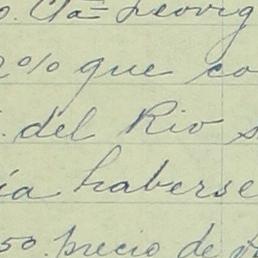 o. Cía= Leovig
2% que co
. del Rio s
ía haberse
50. precio de